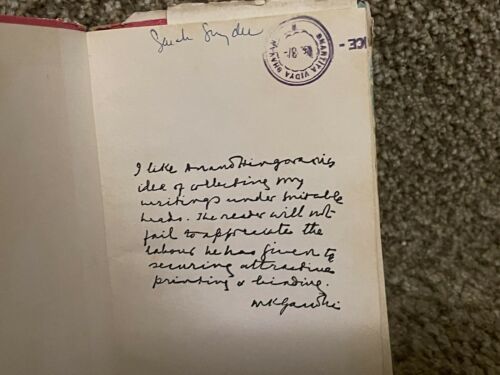 Sarah Snyder
BHARTIYA VIDYA BHAVAN
Rs. 3/-
ICE -
I like Anand Hingorani's
idea of collecting my
writings under suitable
heads. The reader will not
fail to appreciate the
labour he has given to
securing attractive
printing & binding.
MKGandhi